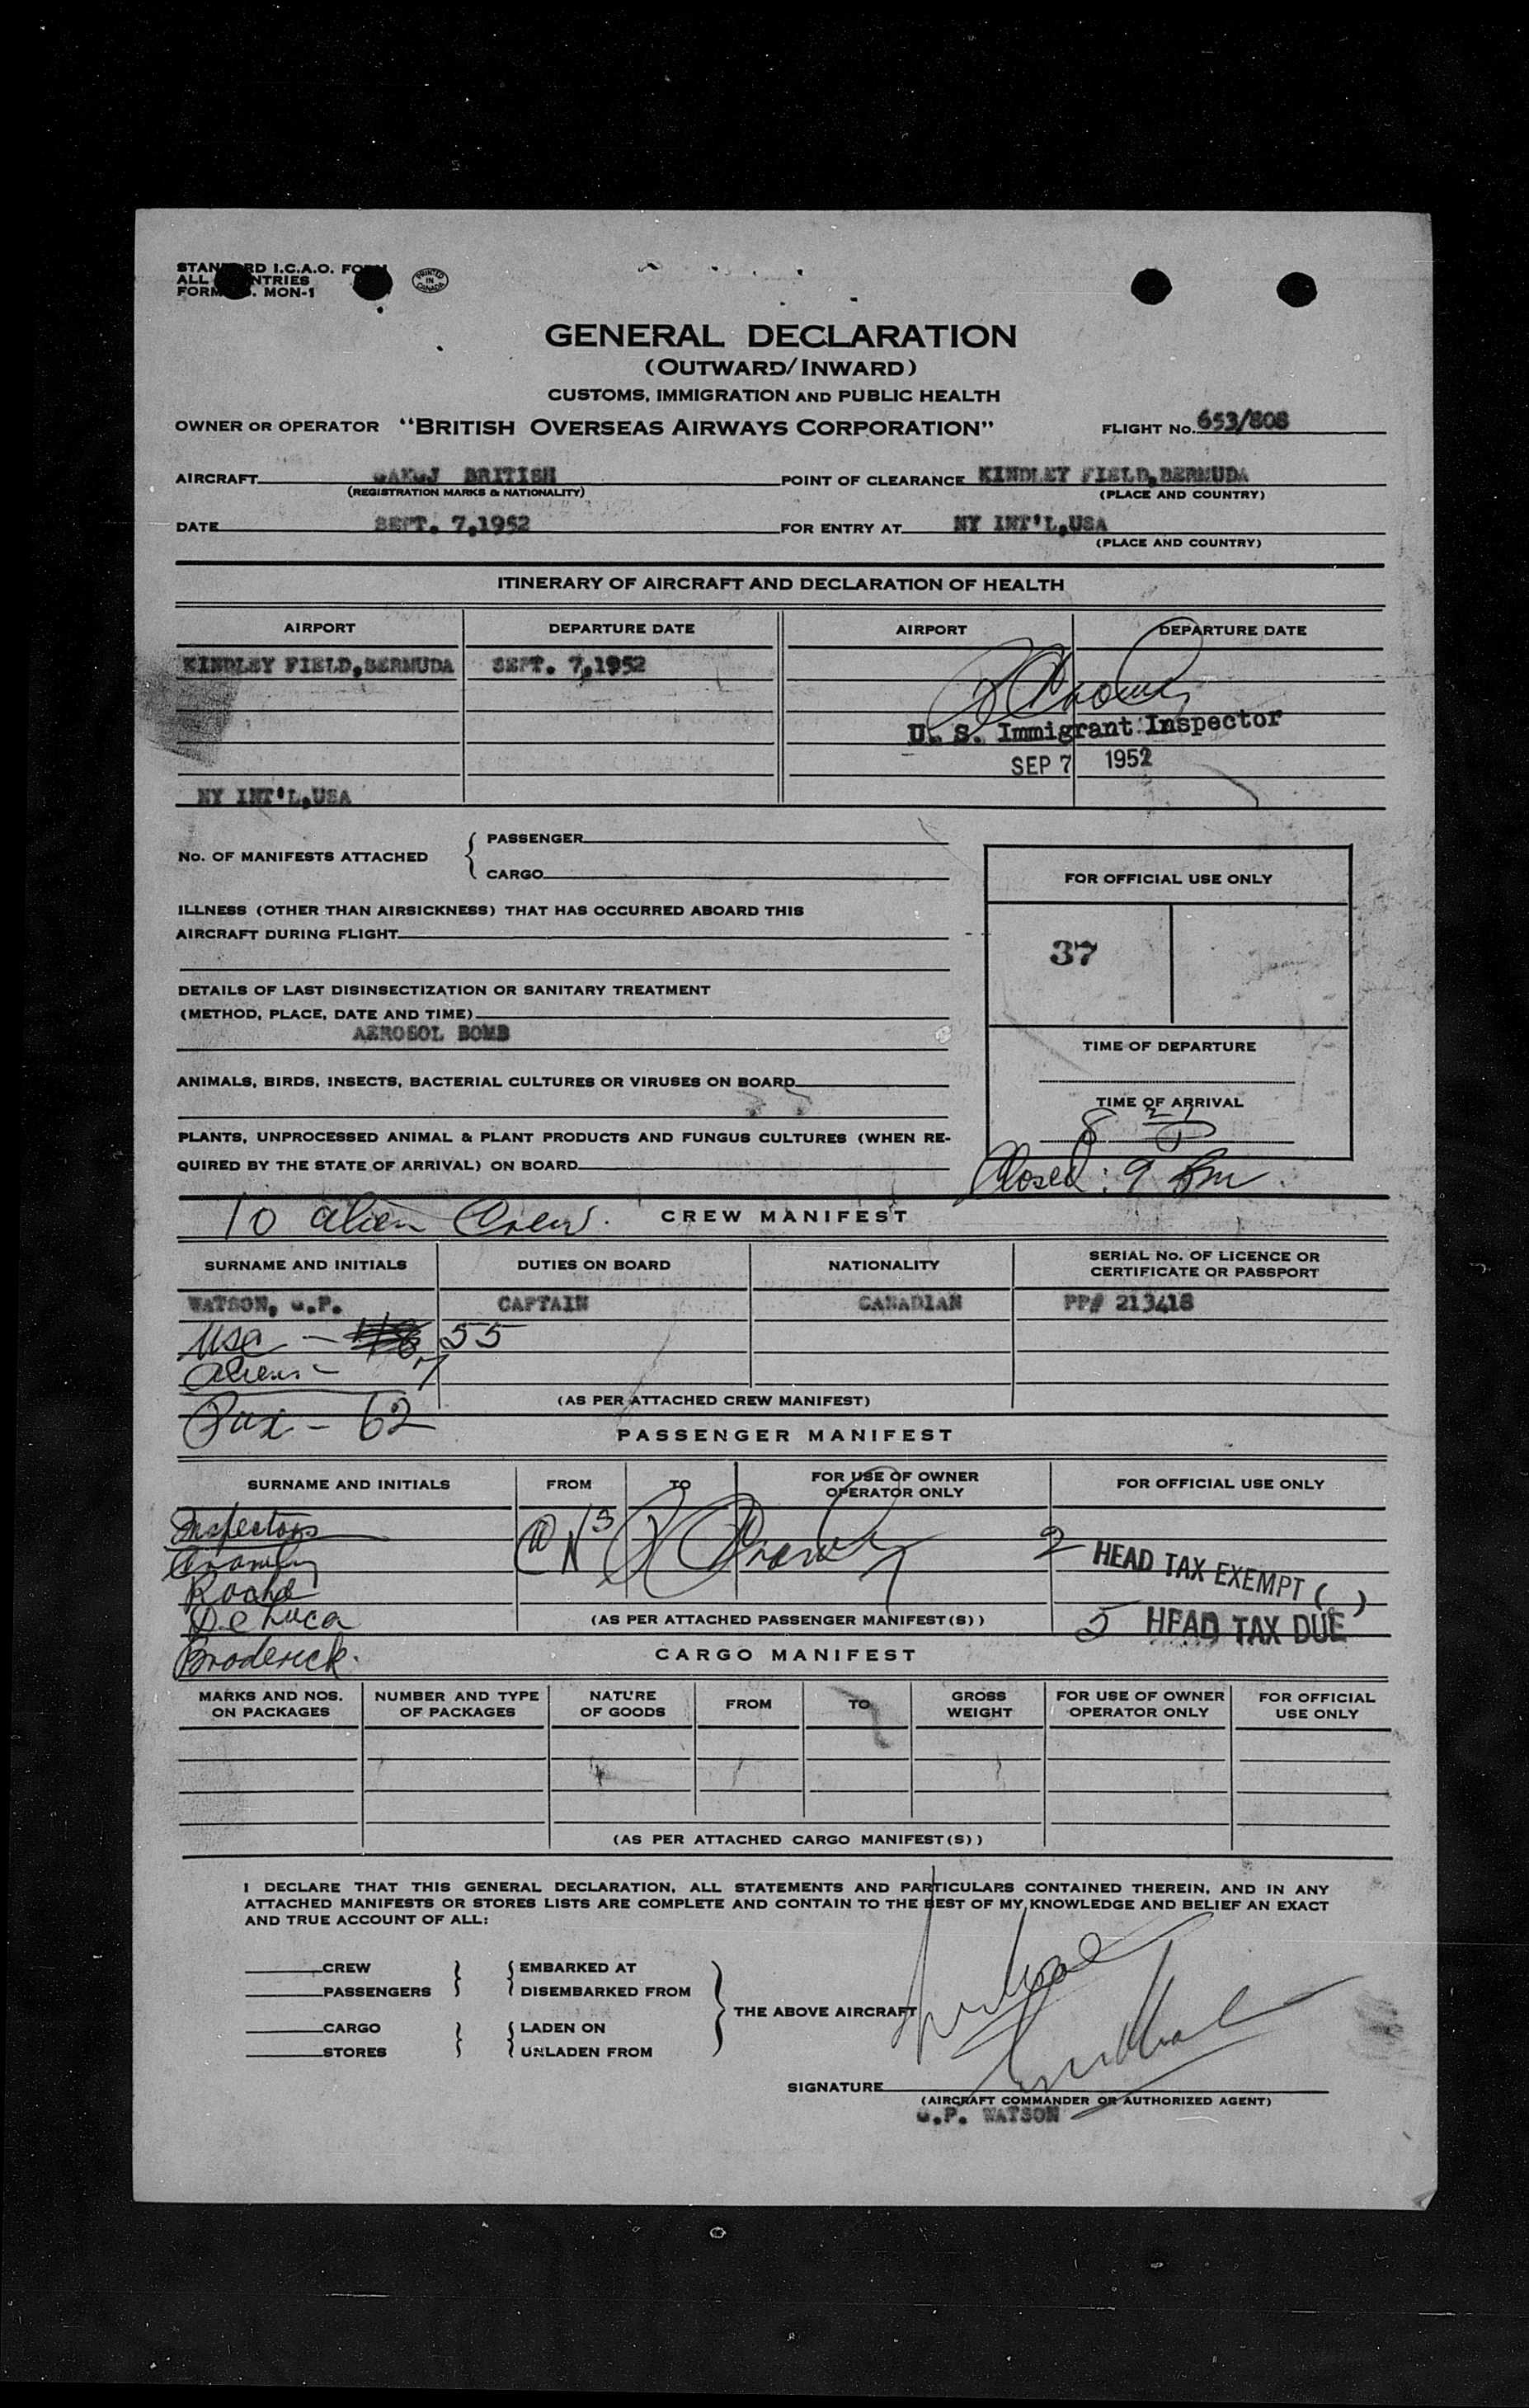 STANDARD I.C.A.O. FORM
ALL COUNTRIES
FORM MON-1
PRINTED IN CANADA
GENERAL DECLARATION
(OUTWARD/INWARD)
CUSTOMS, IMMIGRATION AND PUBLIC HEALTH
OWNER OR OPERATOR "BRITISH OVERSEAS AIRWAYS CORPORATION" FLIGHT No. 653/808
AIRCRAFT BRITISH POINT OF CLEARANCE KINDLEY FIELD,BERMUDA
(REGISTRATION MARKS & NATIONALITY) (PLACE AND COUNTRY)
DATE SEPT. 7,1952 FOR ENTRY AT NY INT'L,USA
(PLACE AND COUNTRY)
ITINERARY OF AIRCRAFT AND DECLARATION OF HEALTH
AIRPORT DEPARTURE DATE AIRPORT DEPARTURE DATE
KINDLEY FIELD,BERMUDA SEPT. 7,1952
U. S. Immigrant Inspector
SEP 7 1952
NY INT'L,USA
No. OF MANIFESTS ATTACHED
PASSENGER
CARGO
FOR OFFICIAL USE ONLY
37
ILLNESS (OTHER THAN AIRSICKNESS) THAT HAS OCCURRED ABOARD THIS
AIRCRAFT DURING FLIGHT
DETAILS OF LAST DISINSECTIZATION OR SANITARY TREATMENT
(METHOD, PLACE, DATE AND TIME)
AEROSOL BOMB
TIME OF DEPARTURE
ANIMALS, BIRDS, INSECTS, BACTERIAL CULTURES OR VIRUSES ON BOARD
TIME OF ARRIVAL
PLANTS, UNPROCESSED ANIMAL & PLANT PRODUCTS AND FUNGUS CULTURES (WHEN RE-
QUIRED BY THE STATE OF ARRIVAL) ON BOARD
Closed: 9 Pm.
10 alien Crew. CREW MANIFEST
SURNAME AND INITIALS DUTIES ON BOARD NATIONALITY SERIAL No. OF LICENCE OR
CERTIFICATE OR PASSPORT
WATSON, G.P. CAPTAIN CANADIAN PP# 213418
Usc - 55
Aliens - 7
(AS PER ATTACHED CREW MANIFEST)
Pax - 62
PASSENGER MANIFEST
SURNAME AND INITIALS FROM TO FOR USE OF OWNER
OPERATOR ONLY FOR OFFICIAL USE ONLY
Inspectors
2 HEAD TAX EXEMPT ( )
Roche
De Luca (AS PER ATTACHED PASSENGER MANIFEST(S)) 5 HEAD TAX DUE
Broderick. CARGO MANIFEST
MARKS AND NOS.
ON PACKAGES NUMBER AND TYPE
OF PACKAGES NATURE
OF GOODS FROM TO GROSS
WEIGHT FOR USE OF OWNER
OPERATOR ONLY FOR OFFICIAL
USE ONLY
(AS PER ATTACHED CARGO MANIFEST(S))
I DECLARE THAT THIS GENERAL DECLARATION, ALL STATEMENTS AND PARTICULARS CONTAINED THEREIN, AND IN ANY
ATTACHED MANIFESTS OR STORES LISTS ARE COMPLETE AND CONTAIN TO THE BEST OF MY KNOWLEDGE AND BELIEF AN EXACT
AND TRUE ACCOUNT OF ALL:
CREW EMBARKED AT
PASSENGERS DISEMBARKED FROM
THE ABOVE AIRCRAFT
CARGO LADEN ON
STORES UNLADEN FROM
SIGNATURE
(AIRCRAFT COMMANDER OR AUTHORIZED AGENT)
G.P. WATSON